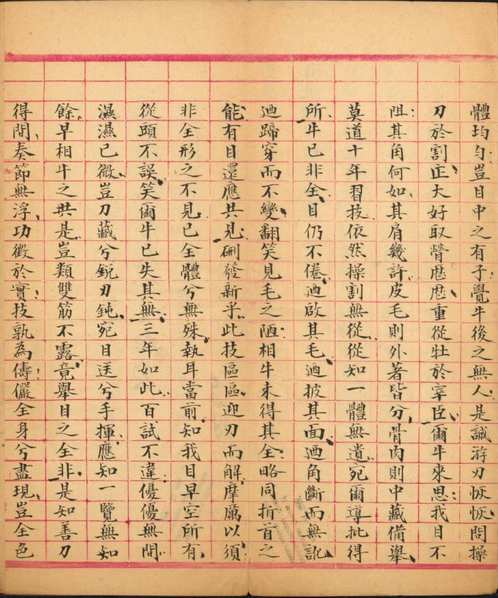 體均勻豈目中之有子覺牛後之無人是誠游刃恢恢問操
刀於割正大好取脅磨磨重從牡於宰臣爾牛來思我目不
阻其角何如其肩幾許皮毛則外著皆分骨肉則中藏備舉
莫道十年習技依然操割無從從知一體無遺宛爾導批得
所牛已非全目仍不倦迺啟其毛迺披其面迺角斷而無訛
迺蹄穿而不變翻笑見毛之陋相牛未得其全略同折首之
能有目還應共見硎發新乎此技區區迎刃而解摩厲以須
非全形之不見已全體兮無殊執耳當前知我目早空所有
從頭不誤笑爾牛已失其無三年如此百試不違優優無間
濕濕已微豈刀藏兮銳刃鈍宛目送兮手揮應知一覽無知
餘早相牛之共是豈類雙筋不露竟舉目之全非是知善刀
得間奏節無浮功微於實技孰為儔儼全身兮盡現豈全色